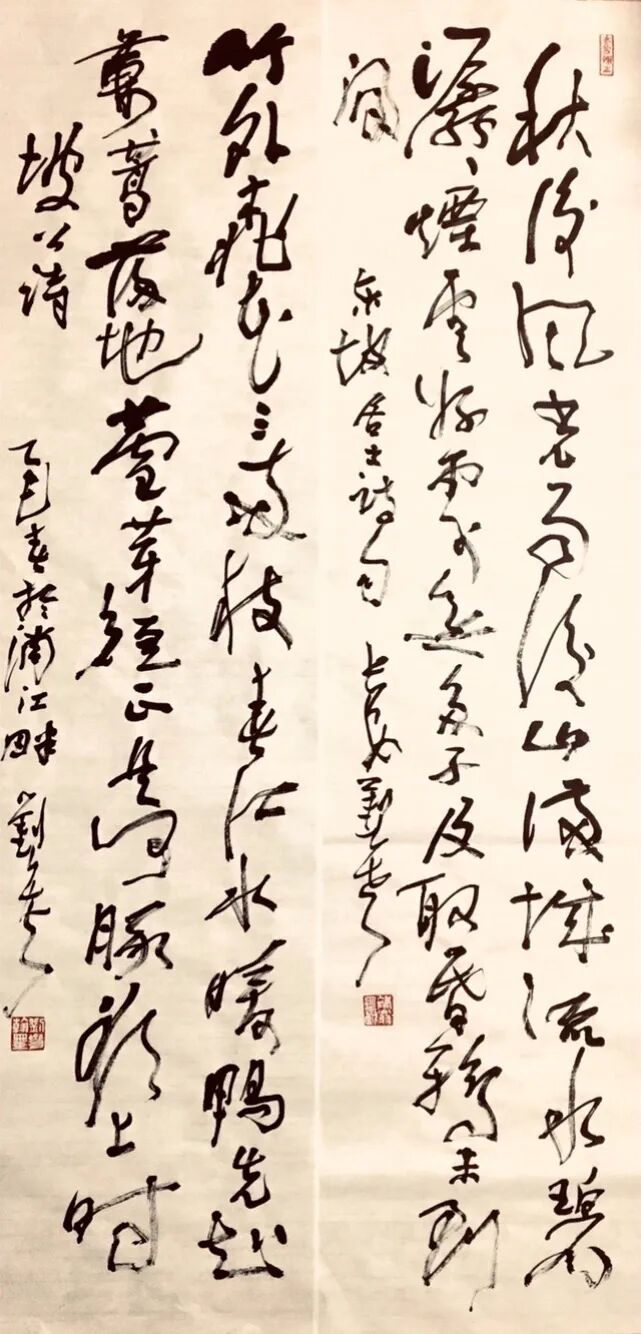 秋後風光雨後山滿城流水碧
潺々煙雲好處無多子及取昏鴉未到
間
東坡居士詩句
竹外桃花三兩枝春江水暖鴨先知
蔞蒿滿地蘆芽短正是河豚欲上時
坡公詩
乙巳春於浦江畔 劉